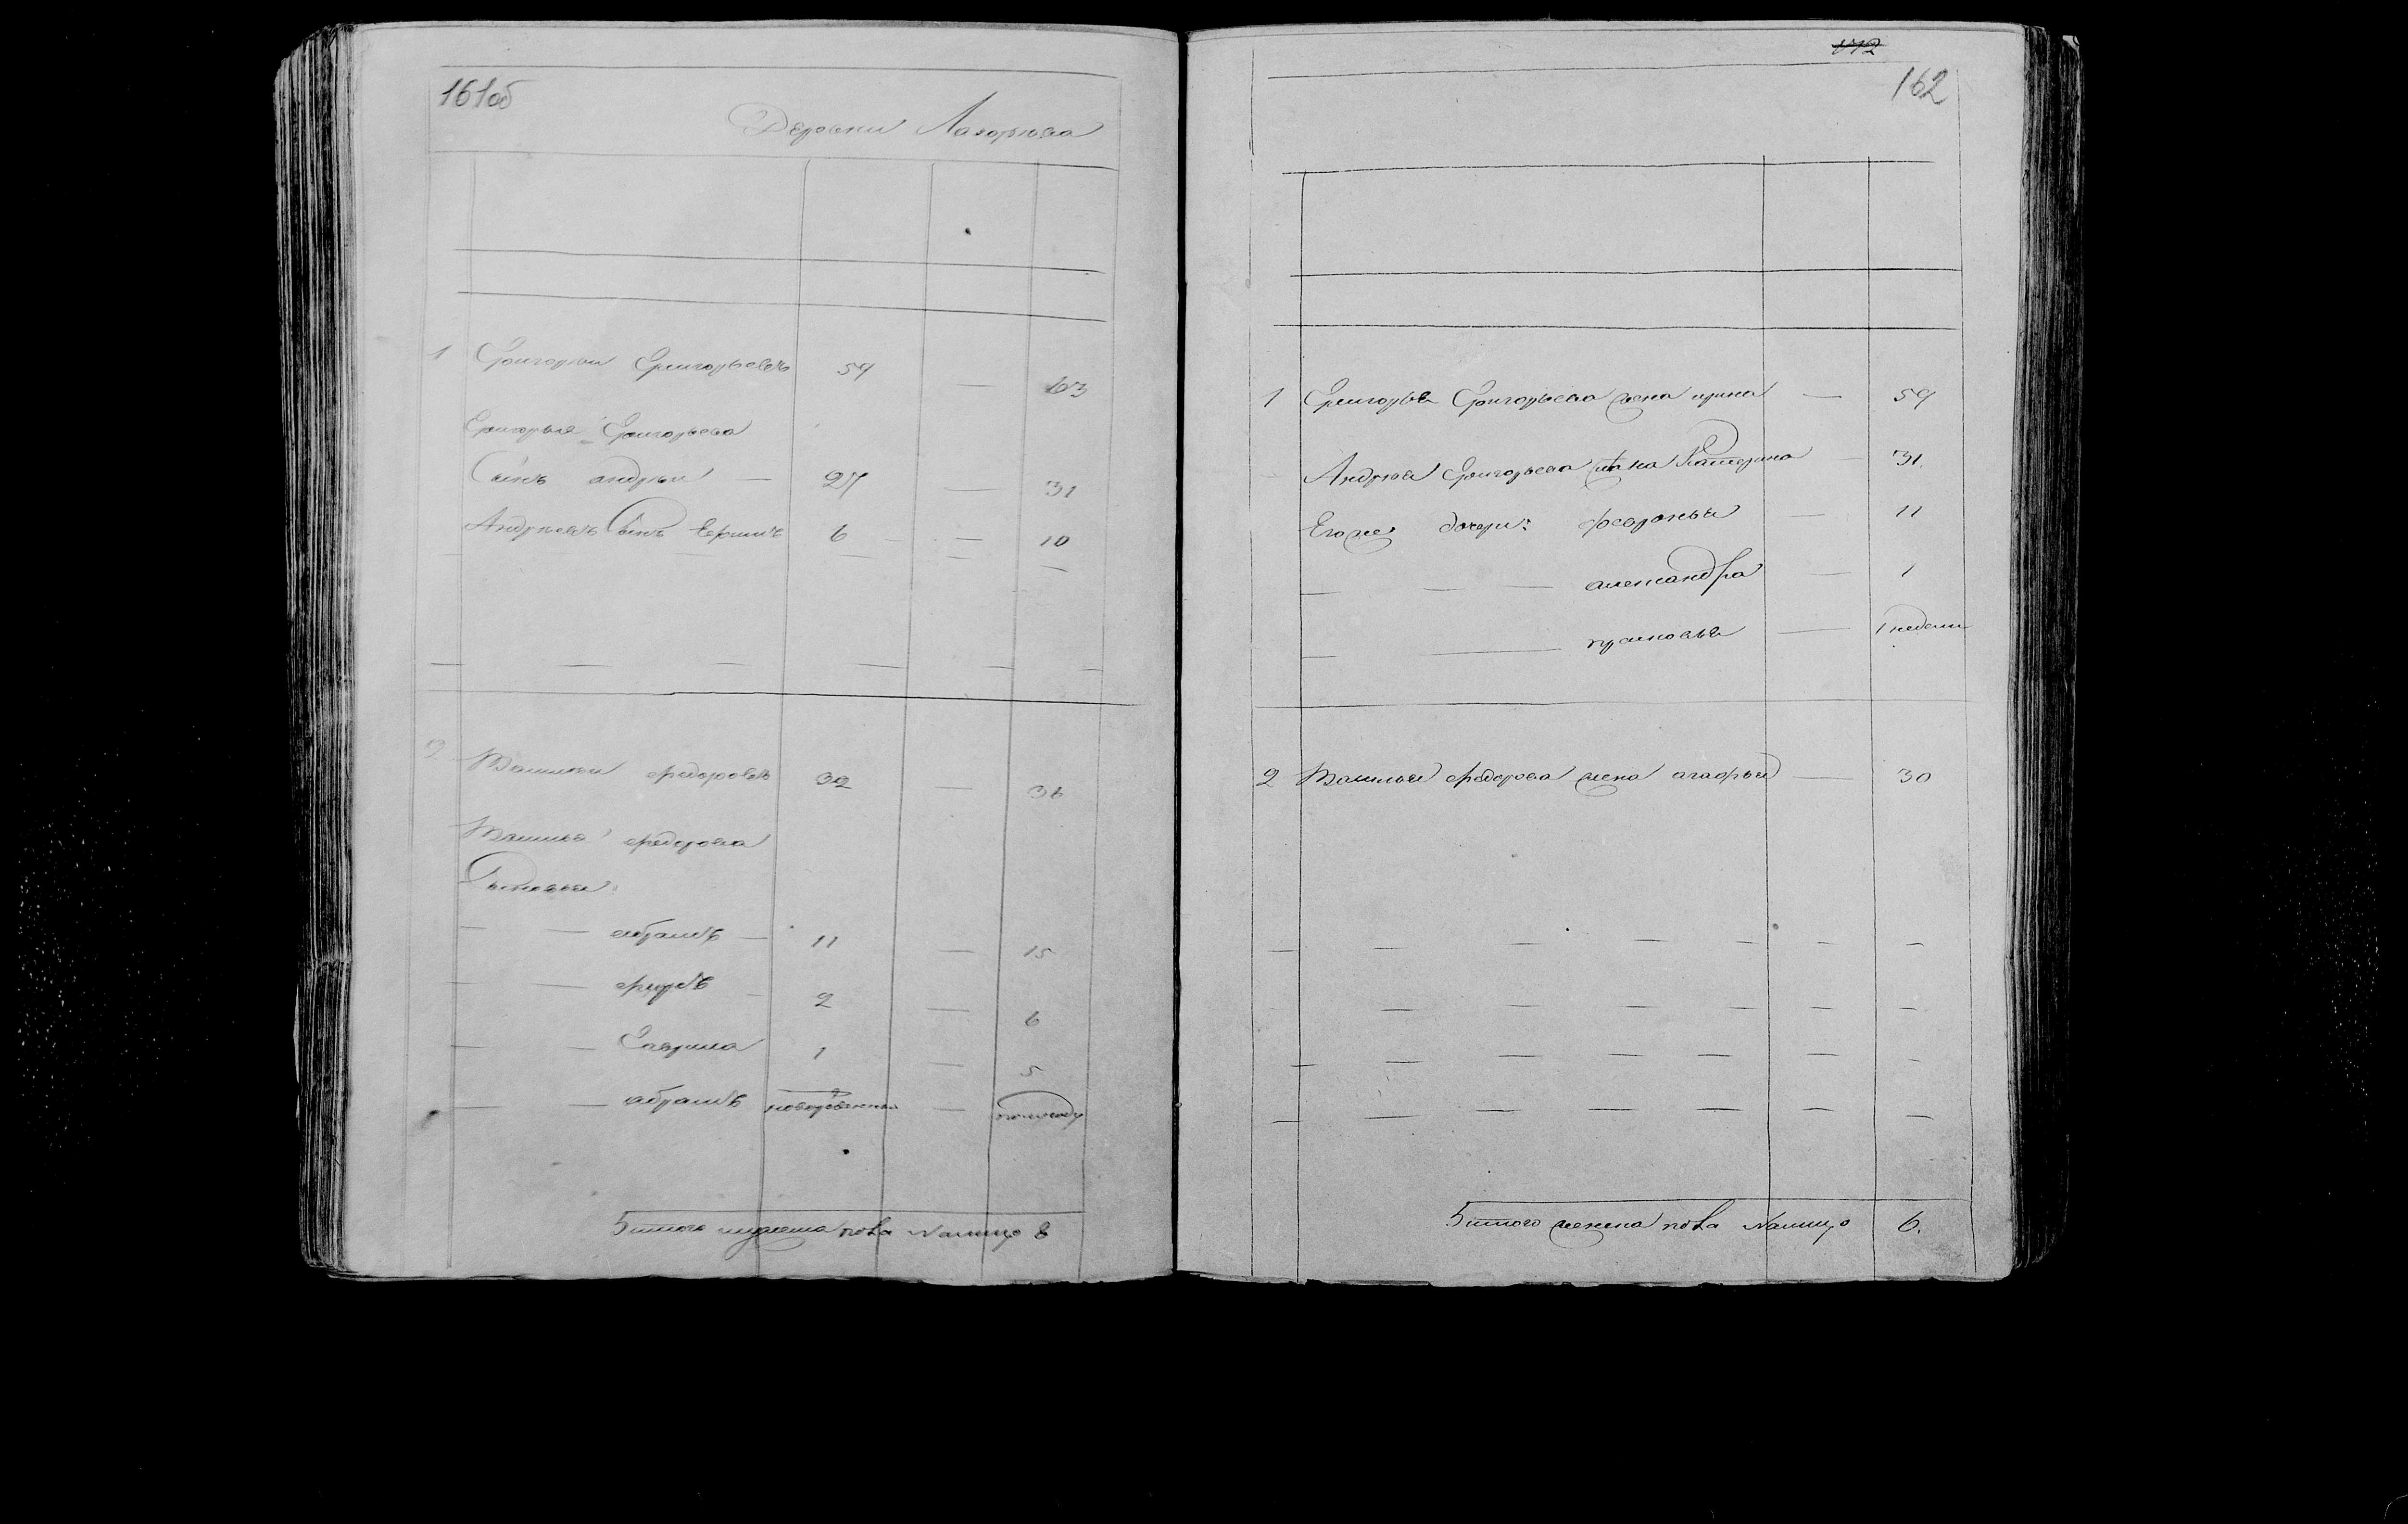 161об
Деревни Лазорева
1 Григорьи Григорьевъ 59 — 63
Григорья Григорьева
Сынъ андреи — 27 — 31
Андреевъ Сынъ 6 — 10
2 Василеи федоровъ 32 — 36
Василья федорова
Сыновья:
— — — 11 — 15
— — — 2 — 6
— — Гаврила 1 — 5
— — абрамъ новорожденъ — полугоду
Итого мужеска пола Налицо 8
172
162
1 Григорья Григорьева жена ирина — 59
Андрея Григорьева жена Катерина — 31.
Егоже дочери: февронья — 11
— — — александра — 1
— — прасковья — 1 недели
2 Василья федорова жена агафья — 30
Итого женска пола Налицо 6.